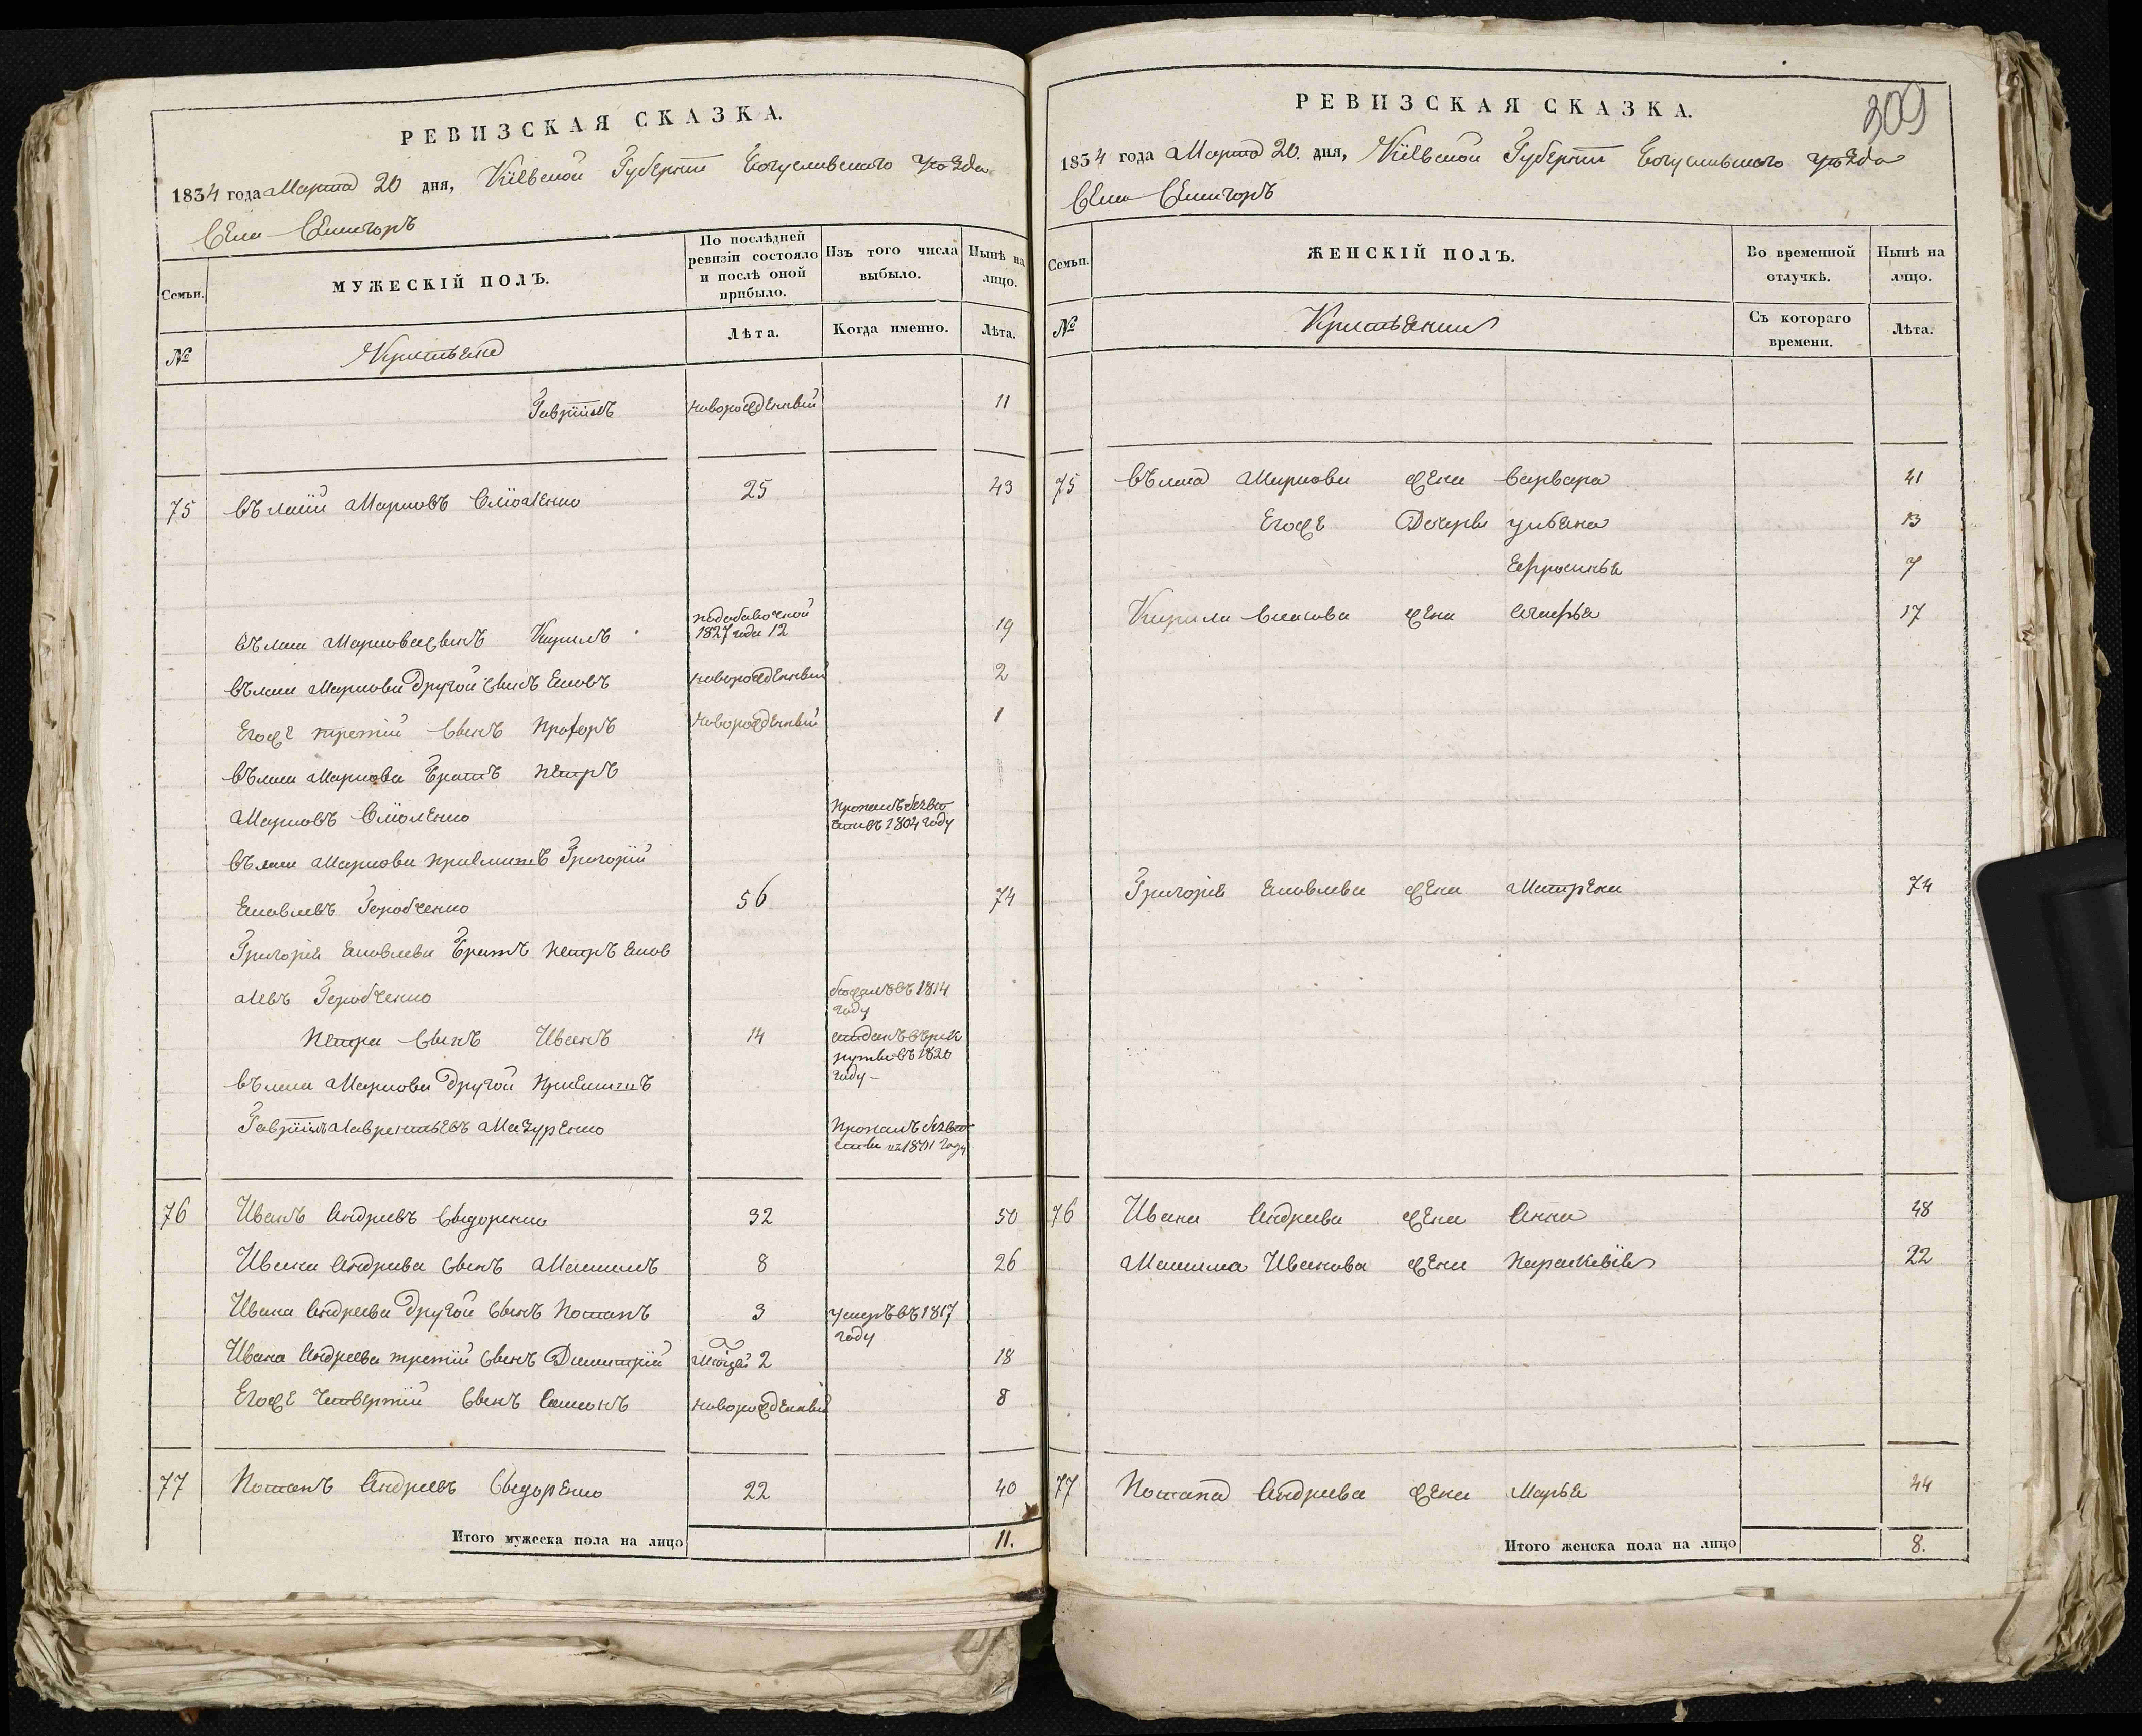 РЕВИЗСКАЯ СКАЗКА.
1834 года Марта 20 дня, Кіевской Губерніи Богуславского уѣзда
Села
Семьи.
МУЖЕСКІЙ ПОЛЪ.
По послѣдней ревизіи состояло и послѣ оной прибыло.
Изъ того числа выбыло.
Нынѣ на лицо.
№
Крестьяне
Лѣта.
Когда именно.
Лѣта.
Гавріилъ новорожденный 11
75 Марковъ 25 43
Маркова сынъ Кирилъ 1827 года 12 19
Маркова другой сынъ Яковъ новорожденный 2
Егоже третій сынъ Прохоръ новорожденный 1
Маркова братъ Петръ
Марковъ пропалъ безвести въ 1804 году
Маркова приемышъ Григорій
Яковлевъ Горобченко 56 74
Григорія Яковлева братъ Петръ Яков
левъ Горобченко бежалъ въ 1814 году
Петра сынъ Иванъ 14 отданъ въ рекруты въ 1820 году
Маркова другой приемышъ
Гавріилъ Лаврентьевъ Мазуренко пропалъ безвести
76 Иванъ Андреевъ Сыдоренко 32 50
Ивана Андреева сынъ Максимъ 8 26
Ивана Андреева другой сынъ Потапъ 3 умеръ въ 1817 году
Ивана Андреева третій сынъ Димитрій 2 18
Егоже четвертій сынъ Симонъ новорожденный 8
77 Потапъ Андреевъ Сыдоренко 22 40
Итого мужеска пола на лицо 11.
309
РЕВИЗСКАЯ СКАЗКА.
1834 года Марта 20. дня, Кіевской Губерніи Богуславского уѣзда
Села
Семьи.
ЖЕНСКІЙ ПОЛЪ.
Во временной отлучкѣ.
Нынѣ на лицо.
№
Крестьянки
Съ котораго времени.
Лѣта.
75 Маркова жена Варвара 41
Егоже дочери Ульяна 13
Ефросинья 7
Кирила жена 17
Григорія Яковлева жена Матрена 74
76 Ивана Андреева жена Анна 48
Максима Иванова жена Параскевія 22
77 Потапа Андреева жена Марья 44
Итого женска пола на лицо 8.